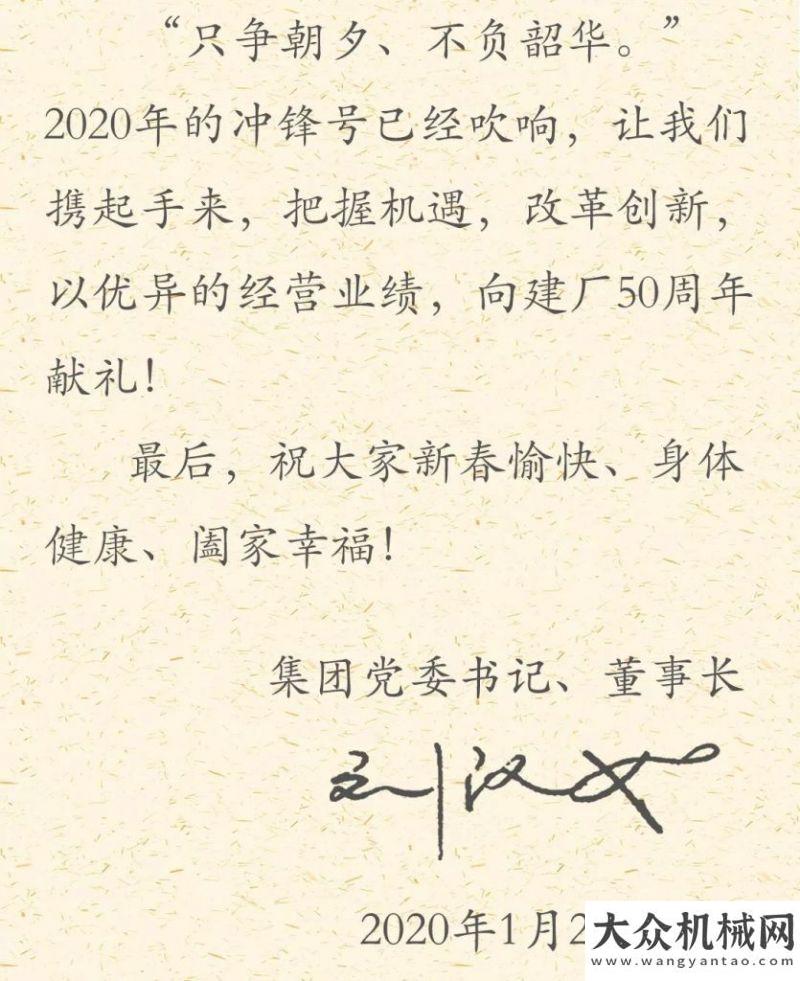 “只争朝夕、不负韶华。”
2020年的冲锋号已经吹响，让我们
携起手来，把握机遇，改革创新，
以优异的经营业绩，向建厂50周年
献礼！
最后，祝大家新春愉快、身体
健康、阖家幸福！
集团党委书记、董事长
刘汉
2020年1月2
大众机械网
www.wangyantao.com